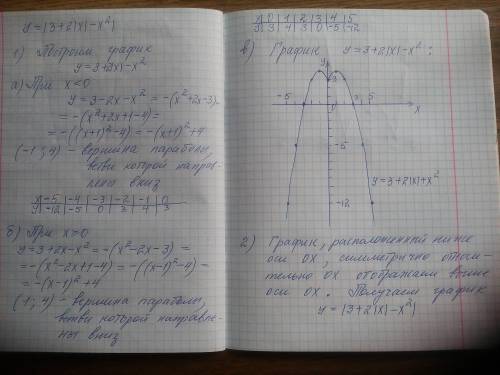 y = |3+2|x|-x²|
1) Построим график
y = 3+2|x|-x²
а) При x<0
y = 3-2x-x² = -(x²+2x-3)
= -(x²+2x+1-4) =
= -((x+1)²-4) = -(x+1)²+4
(-1; 4) - вершина параболы,
ветви которой направ-
лены вниз
x | -5 | -4 | -3 | -2 | -1 | 0
y | -12 | -5 | 0 | 3 | 4 | 3
б) При x=0
y = 3+2x-x² = -(x²-2x-3) =
= -(x²-2x+1-4) = -((x-1)²-4) =
= -(x-1)²+4
(1; 4) - вершина параболы,
ветви которой направле-
ны вниз
x | 0 | 1 | 2 | 3 | 4 | 5
y | 3 | 4 | 3 | 0 | -5 | -12
в) График y = 3+2|x|-x²:
y
-5
5
x
-5
y = 3+2|x|+x²
-12
2) График, расположенный ниже
оси OX, симметрично относи-
тельно OX отображаем выше
оси OX. Получаем график
y = |3+2|x|-x²|